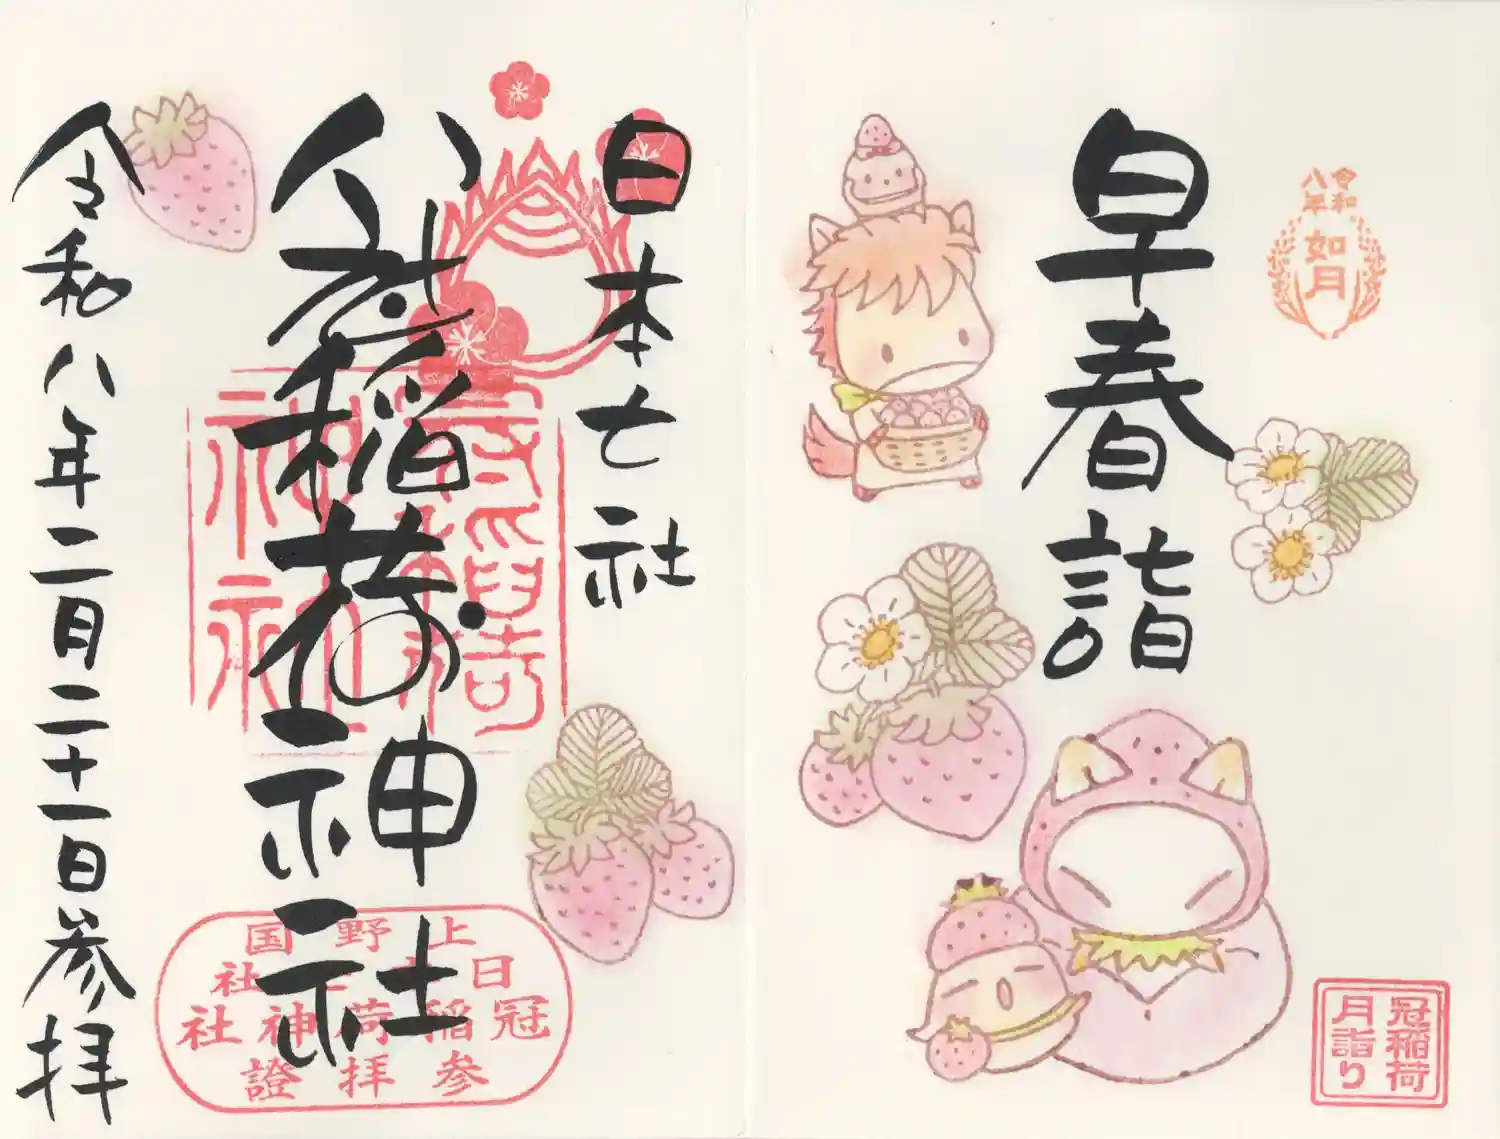 令和
八年
如月
早春詣
冠稲荷
月詣り
日本七社
冠稲荷神社
冠稲荷
神社
上野国
日本七社
冠稲荷神社
参拝證
令和八年二月二十一日参拝